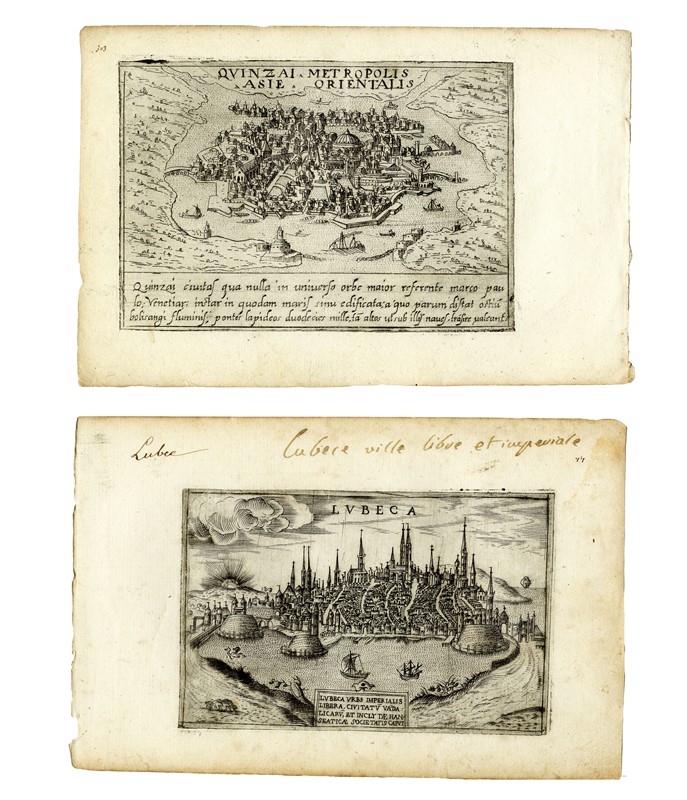 303
QVINZAI . METROPOLIS
. ASIE . ORIENTALIS
Quinzai civitas qua nulla in universo orbe maior referente marco pau
lo, Venetiar: instar in quodam maris sinu edificata; a quo parum distat ostiũ
polisangi fluminis; pontes lapideos duodecies mille, tã altos ut sub illis naves trãsire valeant
Lubec
Lubece ville libre et imperiale
LVBECA
LVBECA VRBS IMPERIALIS
LIBERA, CIVITATV̄ VVĀDA
LICARV̄, ET INCLYTÆ HAN
SEATICÆ SOCIETATIS CAPVT